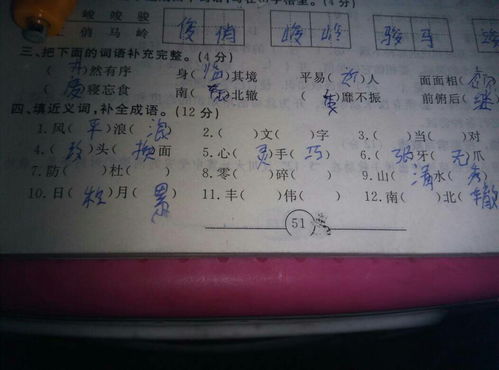 峻 竣 骏
俏 马 岭 俊 俏 峻 岭 骏 马
三、把下面的词语补充完整。(4分)
( 井 )然有序 身( 临 )其境 平易( 近 )人 面面相(
( 废 )寝忘食 南( )北辙 ( 萎 )靡不振 前俯后( 继
四、填近义词,补全成语。(12分)
1.风( 平 )浪( 浪 2.( )文( )字 3.( )当( )对
4.( 改 )头( 换 面 5.心( 灵 )手( 巧 ) 6.( )牙( 无 )爪
7.防( )杜( ) 8.零( )碎( ) 9.山( 清 水( 秀
10.日( 积 )月( 累 11.丰( )伟( ) 12.南( )北( 辙
51